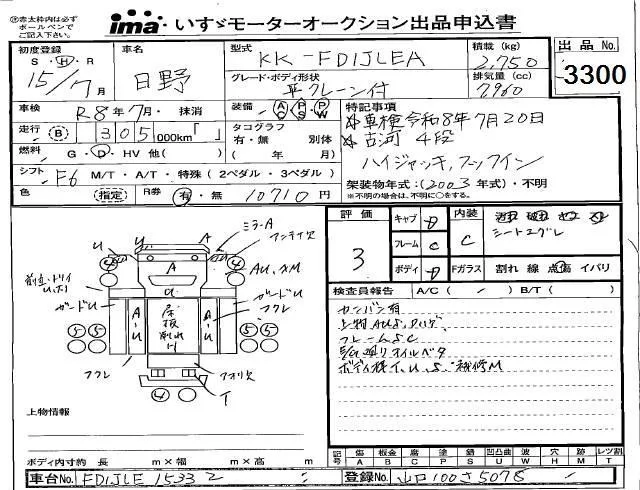 ※赤太枠内は必ず
ボールペンで
ご記入下さい。
ima いすゞモーターオークション出品申込書
初度登録
S・H・R
15/7月
車名
日野
型式
KK-FD1JLEA
積載 (kg)
2,750
グレード・ボディ形状
平クレーン付
排気量 (cc)
7960
出品 No.
3300
車検 R8年7月・抹消
装備 A/C P/S P/W
走行 B 305 000km「 」
タコグラフ
有・無 別体
( 年 月)
燃料 G・D・HV 他( )
シフト F6 M/T・A/T・特殊(2ペダル・3ペダル)
色 (指定) R券 有・無 10710円
特記事項
☆車検令和8年7月20日
☆古河 4段
ハイジャッキ,フックイン
架装物年式:(2003年式)・不明
※不明の場合は、不明に○をする。
評価
3
キャブ D
フレーム C
ボディ D
内装
C
シートコゲレ
Fガラス 割れ 線 点傷 イバリ
検査員報告 A/C( / ) B/T( )
カンバン有
上物AUS,サハゲ
フレームS,C
ボディ横T,U,S 補修M
ミラーA
アンテイ欠
U
A
AU,AM
ガードU
フクレ
A-U
床板割れ
ガードU
フクレ
アオリ欠
T
4 4 5 5 5 5 4 4
上物情報
ボディ内寸約 長 m×幅 m×高 m
記号 傷 A 板金 B 腐 C 塗 P 錆 S 凹凸曲 U 波 W 穴 H 無 M レツ割 T
車台No. FD1JLE 15332
登録No. 山口100さ5078